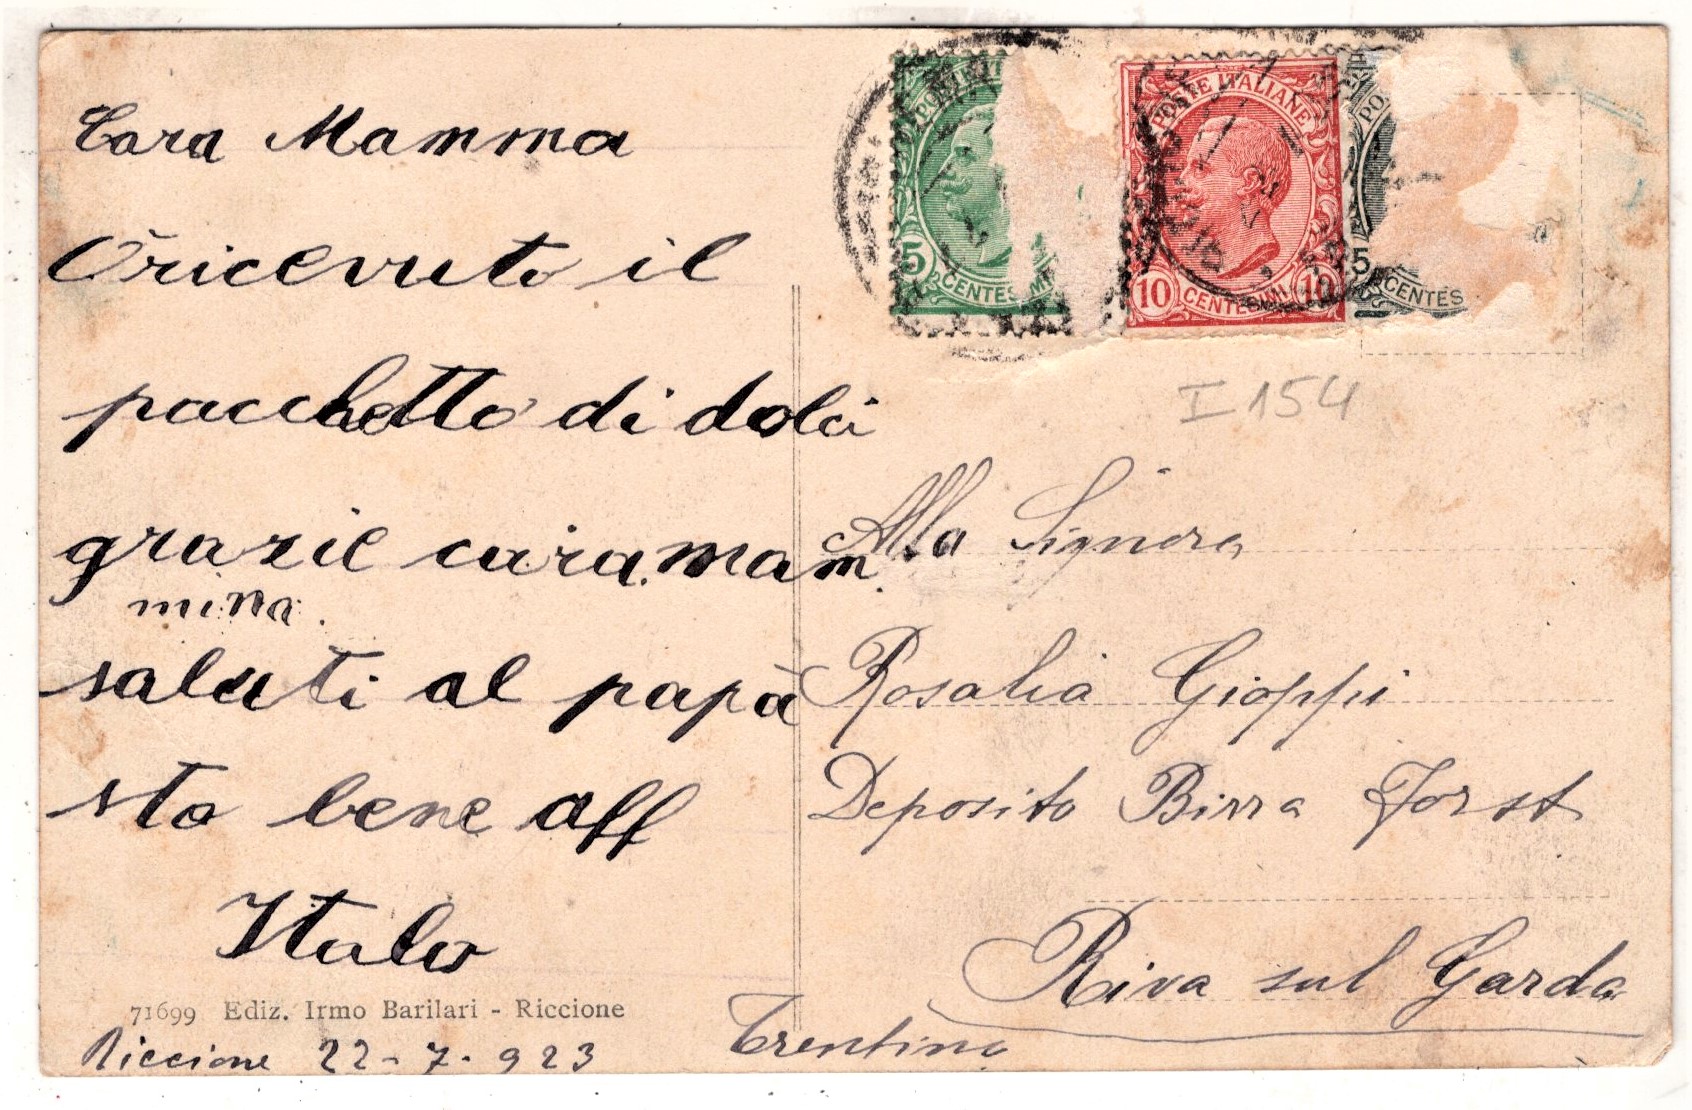 Cara Mamma
O ricevuto il
pacchetto di dolci
grazie cara mam
mina.
saluti al papà
sto bene aff
Italo
71699 Ediz. Irmo Barilari - Riccione
Riccione 22-7-923
POSTE ITALIANE
5
CENTES
10 CENTESIMI 10
PO
5
CENTES
I 154
Alla Signora
Rosalia Gioppi
Deposito Birra Forst
Riva sul Garda
Trentino